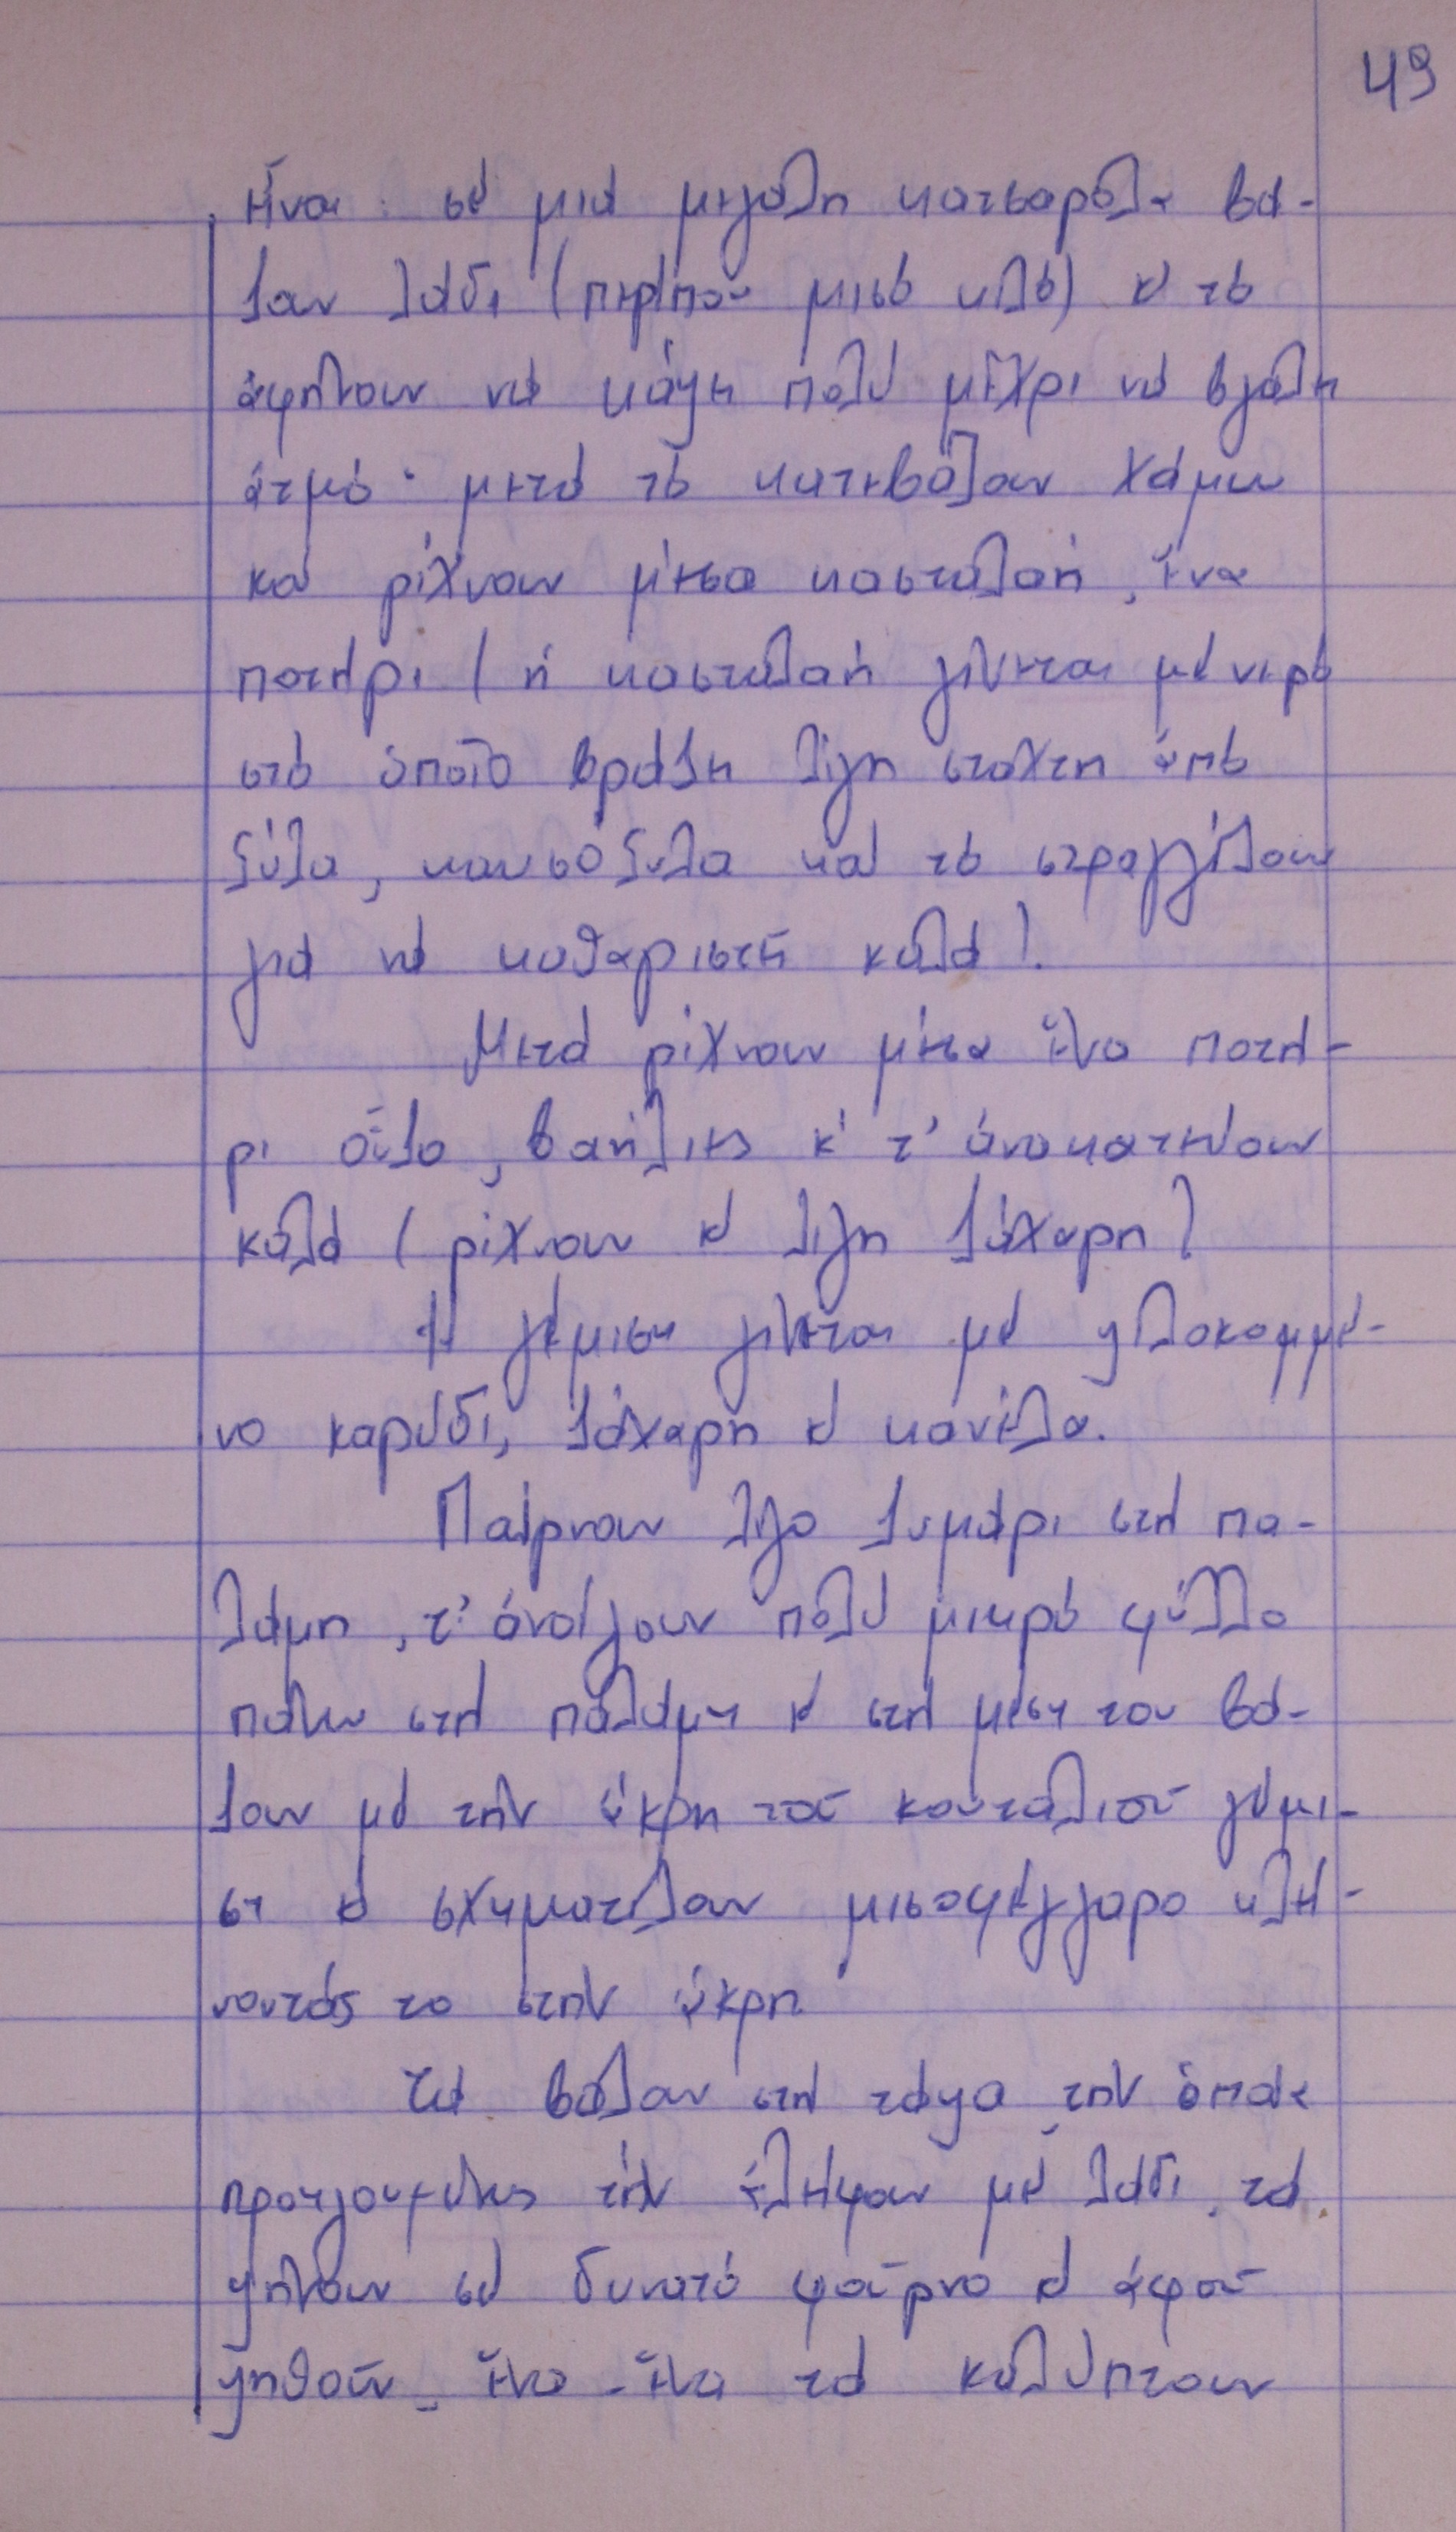 49
εἶναι: σέ μιά μεγάλη κατσαρόλα βά-
ζουν λάδι (περίπου μισό κιλό) κ' τό
ἀφήνουν νά κάψη πολύ μέχρι νά βγάλη
ἀτμό· μετά τό κατεβάζουν χάμω
καί ρίχνουν μέσα κασταλαή, ἕνα
ποτήρι (ἡ κασταλαή γίνεται μέ νερό
στό ὁποῖο βράζει λίγη στάχτη ἀπό
ξύλα, καυσόξυλα καί τό στραγγίζουν
γιά νά καθαριστῆ καλά).
Μετά ρίχνουν μέσα ἕνα ποτή-
ρι οὖζο, βανίλιες κ' τ' ἀνακατεύουν
καλά (ρίχνουν κ' λίγη ζάχαρη)
Ἡ γέμιση γίνεται μέ ψιλοκομμέ-
νο καρύδι, ζάχαρη κ' κανέλα.
Παίρνουν λίγο ζυμάρι στή πα-
λάμη, τ' ἀνοίγουν πολύ μικρό φύλλο
πάνω στή παλάμη κ' στή μέση του βά-
ζουν μέ τήν ἄκρη τοῦ κουταλιοῦ γέμι-
ση κ' σχηματίζουν μισοφέγγαρο κλεί-
νοντάς το στήν ἄκρη.
Τά βάζουν στή τάψα τήν ὁποία
προηγουμένως τήν ἐλείψαν μέ λάδι, τά
ψήνουν σέ δυνατό φοῦρνο κ' ἀφοῦ
ψηθοῦν, ἕνα-ἕνα τά καλύπτουν